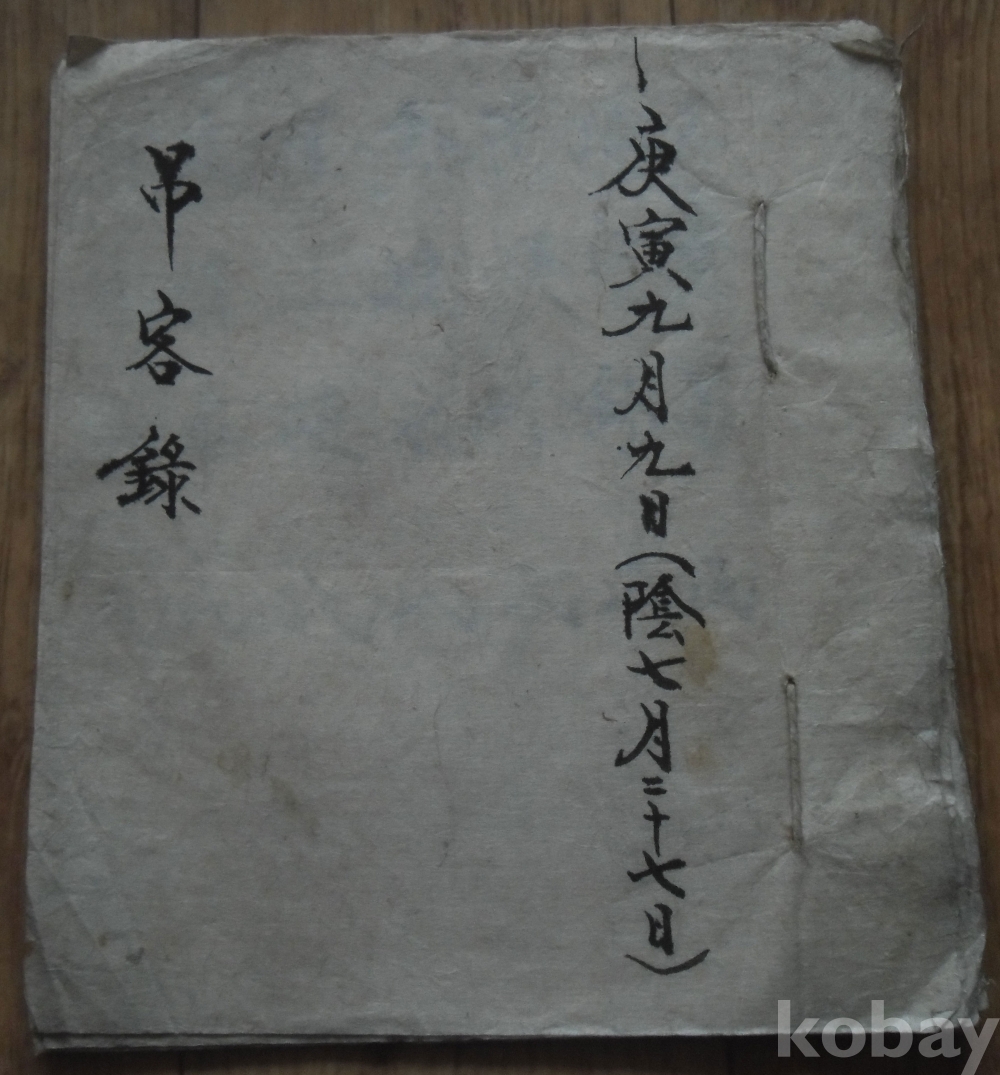 庚寅九月九日(陰七月二十七日)
吊客錄
kobay